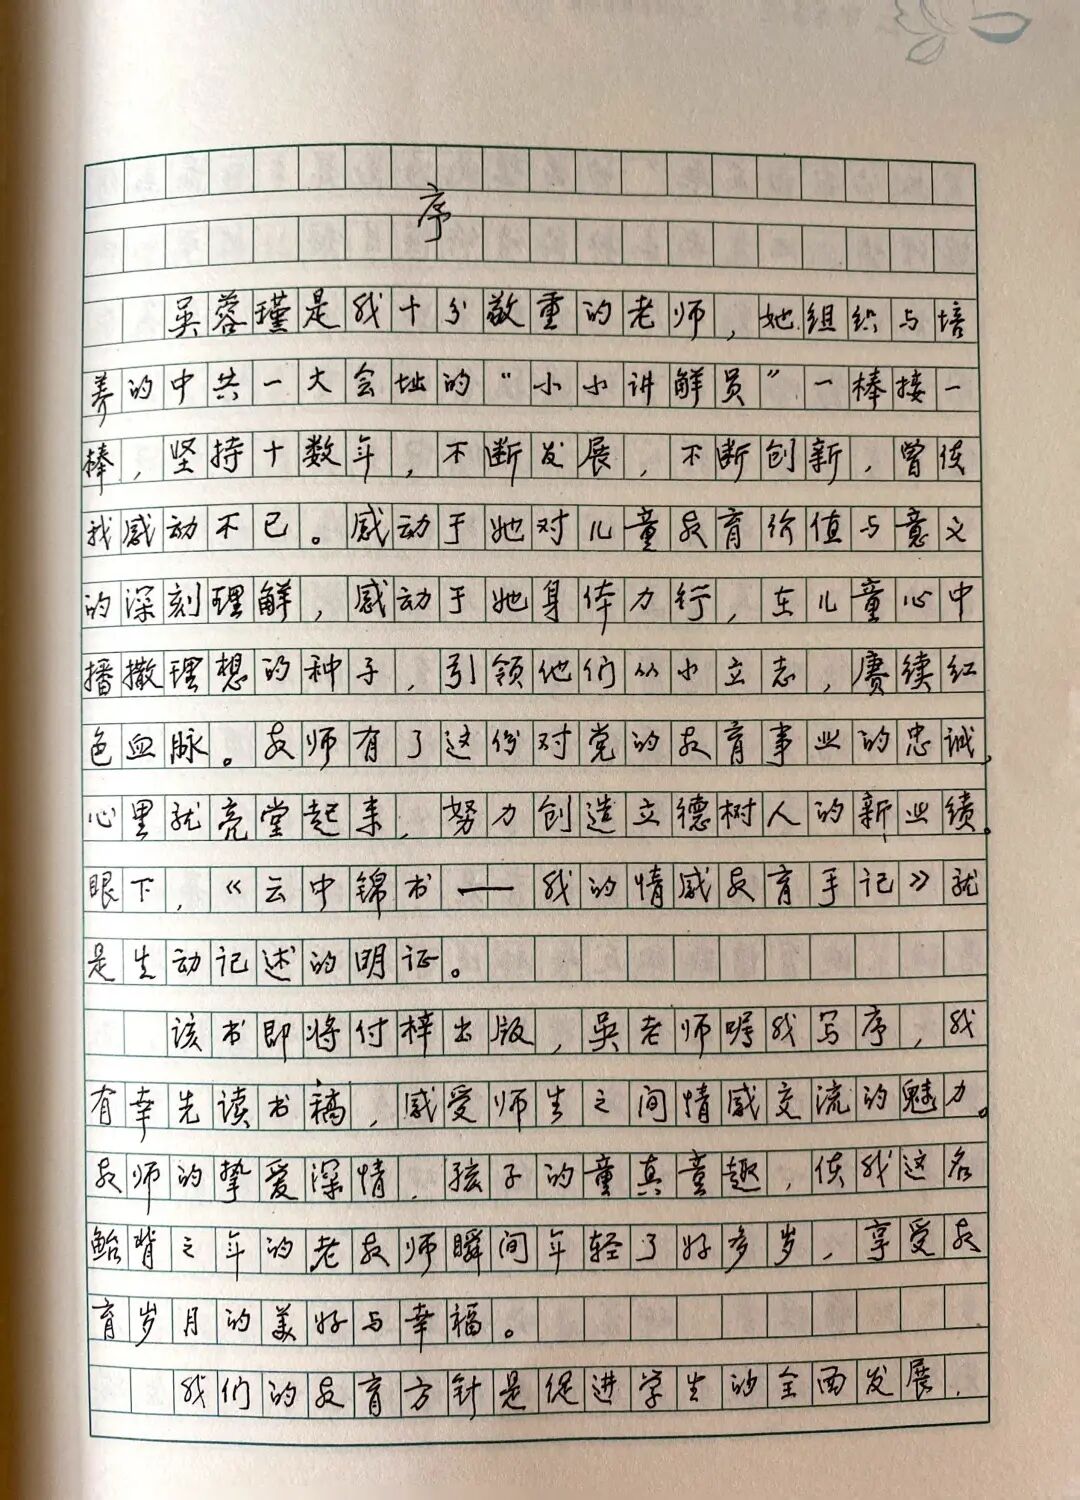 序
吴蓉瑾是我十分敬重的老师，她组织与培
养的中共一大会址的“小小讲解员”一棒接一
棒，坚持十数年，不断发展，不断创新，曾使
我感动不已。感动于她对儿童教育价值与意义
的深刻理解，感动于她身体力行，在儿童心中
播撒理想的种子，引领他们从小立志，赓续红
色血脉。教师有了这份对党的教育事业的忠诚，
心里就亮堂起来，努力创造立德树人的新业绩。
眼下，《云中锦书——我的情感教育手记》就
是生动记述的明证。
该书即将付梓出版，吴老师嘱我写序，我
有幸先读书稿，感受师生之间情感交流的魅力。
教师的挚爱深情，孩子的童真童趣，使我这名
鲐背之年的老教师瞬间年轻了好多岁，享受教
育岁月的美好与幸福。
我们的教育方针是促进学生的全面发展，